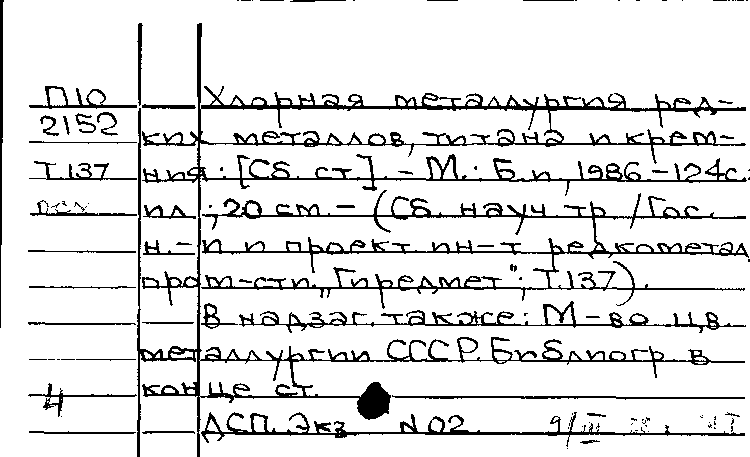 П10 Хлорная металлургия ред-
2152 ких металлов, титана и крем-
Т.137 ния: [Сб. ст.]. - М.: Б.и, 1986 - 124с.:
ил ; 20 cm. - (Сб. науч тр / Гос.
н.-и и проект ин-т редкометал
пром-сти. „Гиредмет"; Т.137).
В надзаг. также: М-во цв.
металлургии СССР. Библиогр в
4 конце ст.
ДСП. Экз N02. 9/III